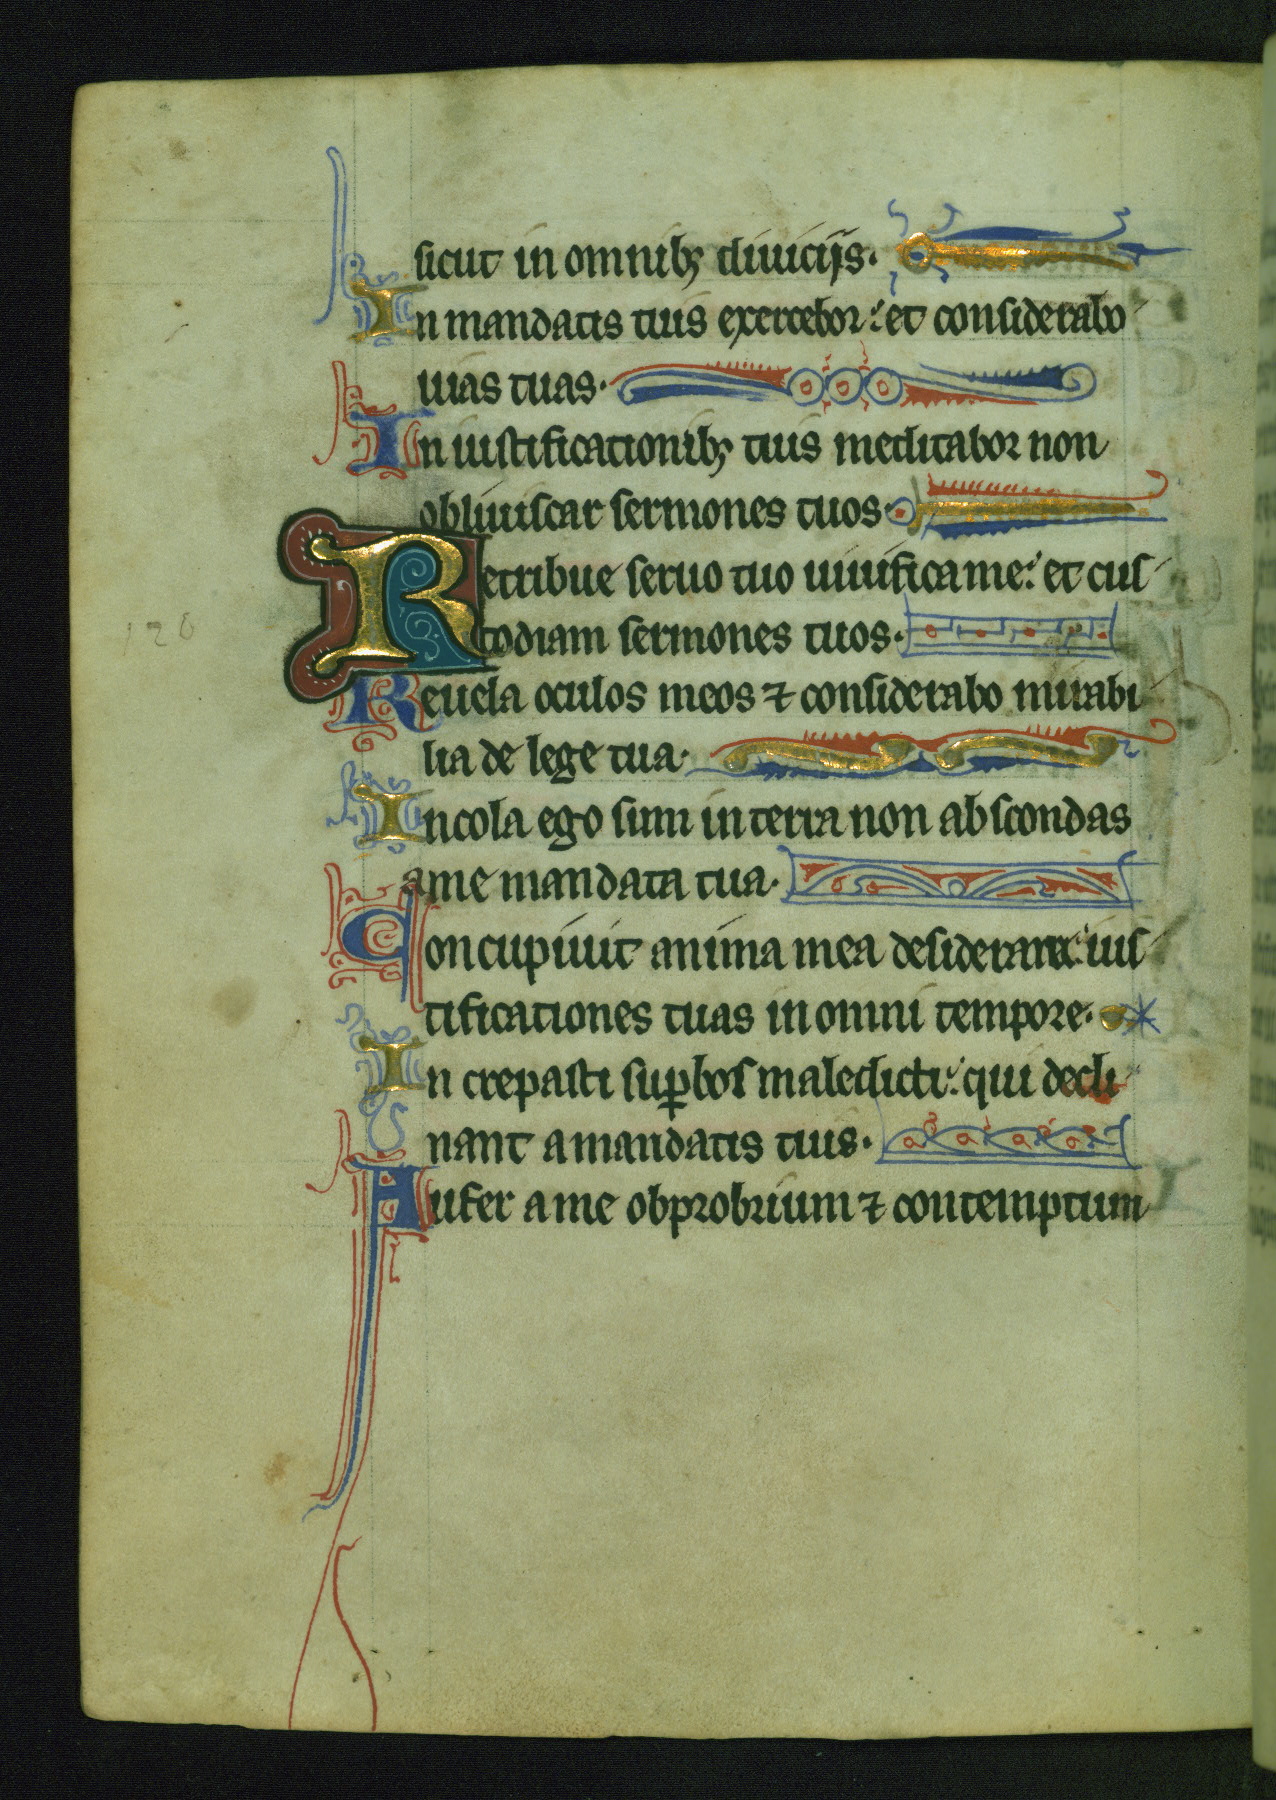 sicut in omnibꝫ diuicijs.
In mandatis tuis exercebor: et considerabo
uias tuas.
In iustificationibꝫ tuis meditabor non
obliuiscar sermones tuos.
Retribue seruo tuo uiuifica me: et cus
todiam sermones tuos.
Reuela oculos meos ⁊ considerabo mirabi
lia de lege tua.
Incola ego sum in terra non abscondas
a me mandata tua.
Concupiuit anima mea desiderare: ius
tificationes tuas in omni tempore.
In crepasti suꝑbos maledicti: qui decli
nant a mandatis tuis.
Aufer a me obprobrium ⁊ contemptum
120